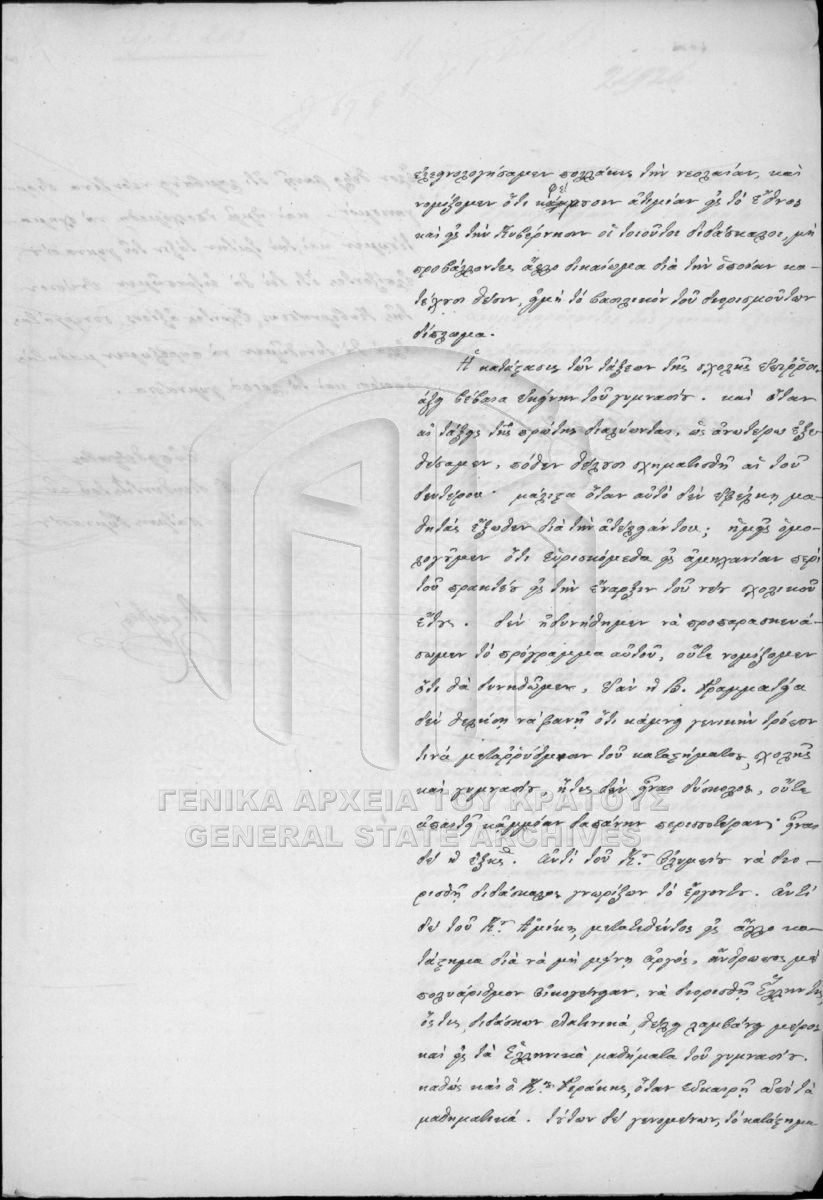 ἐλεεινολογήσαμεν πολλάκις τὴν νεολαίαν, καὶ
νομίζομεν ὅτι φέρουσιν ἀτιμίαν εἰς τὸ ἔθνος
καὶ εἰς τὴν Κυβέρνησιν οἱ τοιοῦτοι διδάσκαλοι, μὴ
προβάλλοντες ἄλλο δικαίωμα διὰ τὴν ὁποίαν κα-
τέχουσι θέσιν, εἰμὴ τὸ βασιλικὸν τοῦ διορισμοῦ των
δίπλωμα.
Ἡ κατάστασις τῶν τάξεων τῆς σχολῆς ἐπιρρεά-
ζει βέβαια ἐκείνην τοῦ γυμνασίου. καὶ ὅταν
αἱ τάξεις τῆς πρώτης διαλύωνται, ὡς ἀνωτέρω ἐξε-
θέσαμεν, πόθεν θέλουσι σχηματισθῆ αἱ τοῦ
δευτέρου· μάλιστα ὅταν αὐτὸ δὲν ἐφέλκῃ μα-
θητὰς ἔξωθεν διὰ τὴν ἀτέλειάν του; ἡμεῖς ὁμο-
λογοῦμεν ὅτι εὑρισκόμεθα εἰς ἀμηχανίαν περὶ
τοῦ πρακτέου εἰς τὴν ἔναρξιν τοῦ νέου σχολικοῦ
ἔτους. δὲν ἠδυνήθημεν νὰ προπαρασκευά-
σωμεν τὸ πρόγραμμα αὐτοῦ, οὔτε νομίζομεν
ὅτι θὰ δυνηθῶμεν, ἐὰν ἡ Β. Γραμματεία
δὲν θελήσῃ νὰ φανῇ ὅτι κάμνει γενικὴν τρόπον
τινὰ μεταρρύθμισιν τοῦ καταστήματος, σχολῆς
καὶ γυμνασίου, ἥτις δὲν εἶναι δύσκολος, οὔτε
ἀπαιτεῖ καμμίαν δαπάνην περισσοτέραν· εἶναι
δὲ ἡ ἑξῆς. Ἀντὶ τοῦ Κου νὰ διο-
ρισθῇ διδάσκαλος γνωρίζων τὸ ἔργον του. Ἀντὶ
δὲ τοῦ Κου μετατεθέντος εἰς ἄλλο κα-
τάστημα διὰ νὰ μὴ μείνῃ ἀργός, ἄνθρωπος μὲ
πολυάριθμον οἰκογένειαν, νὰ διορισθῇ Ἕλλην τις,
ὅστις, διδάσκων Λατινικά, θέλει λαμβάνει μέρος
καὶ εἰς τὰ Ἑλληνικὰ μαθήματα τοῦ γυμνασίου.
καθὼς καὶ ὁ Κος Γεράκης, ὅταν εὐκαιρῇ ἀπὸ τὰ
μαθηματικά. τούτων δὲ γενομένων, τὸ κατάστημα
ΓΕΝΙΚΑ ΑΡΧΕΙΑ ΤΟΥ ΚΡΑΤΟΥΣ
GENERAL STATE ARCHIVES